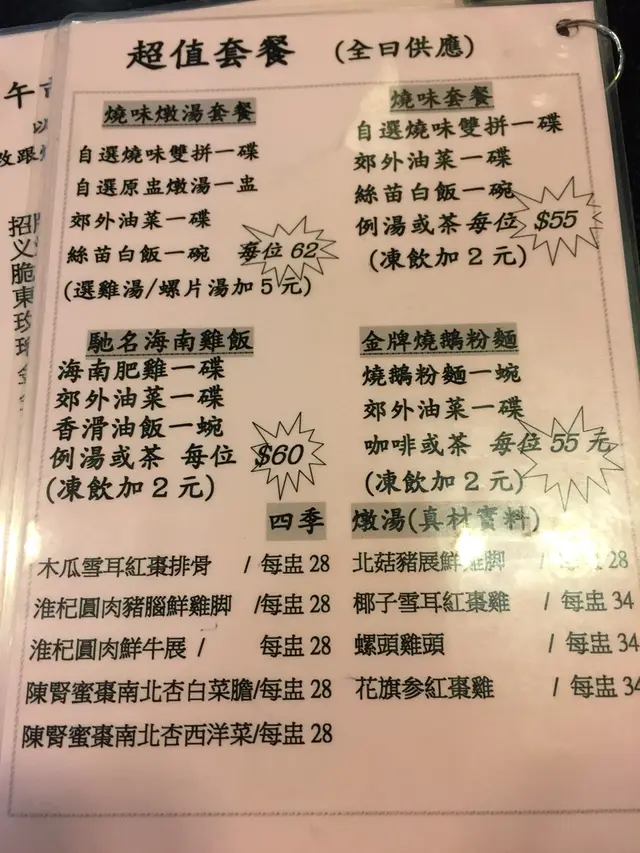 超值套餐 (全日供應)
燒味燉湯套餐
自選燒味雙拼一碟
自選原盅燉湯一盅
郊外油菜一碟
絲苗白飯一碗 每位 62
(選雞湯/螺片湯加 5 元)
燒味套餐
自選燒味雙拼一碟
郊外油菜一碟
絲苗白飯一碗
例湯或茶 每位 $55
(凍飲加 2 元)
馳名海南雞飯
海南肥雞一碟
郊外油菜一碟
香滑油飯一碗
例湯或茶 每位 $60
(凍飲加 2 元)
金牌燒鵝粉麵
燒鵝粉麵一碗
郊外油菜一碟
咖啡或茶 每位 55 元
(凍飲加 2 元)
四季 燉湯(真材實料)
木瓜雪耳紅棗排骨 / 每盅 28
淮杞圓肉豬腦鮮雞脚 /每盅 28
淮杞圓肉鮮牛展 / 每盅 28
陳腎蜜棗南北杏白菜膽/每盅 28
陳腎蜜棗南北杏西洋菜/每盅 28
北菇豬展鮮雞脚 / 每盅 28
椰子雪耳紅棗雞 / 每盅 34
螺頭雞頭 / 每盅 34
花旗参紅棗雞 / 每盅 34